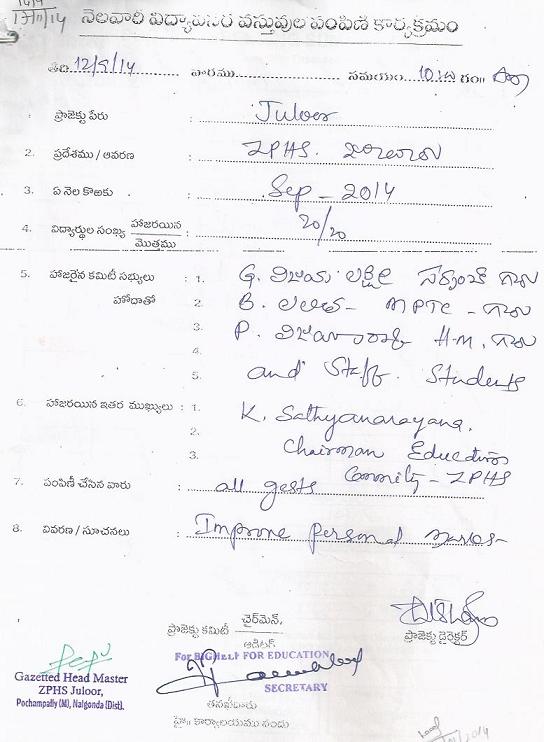 17/11/14
నెలవారీ విద్యావసర వస్తువుల పంపిణి కార్యక్రమం
తేది 12/9/14 వారము సమయం 10:00 గం॥
1. ప్రాజెక్టు పేరు : Juloor
2. ప్రదేశము / ఆవరణ : ZPHS. జూలూరు
3. ఏ నెల కొఱకు : Sep - 2014
4. విద్యార్థుల సంఖ్య హాజరయిన / మొత్తము : 20/20
5. హాజరైన కమిటీ సభ్యులు : 1. G. విజయ లక్ష్మి సర్పంచ్ గారు
హోదాతో 2. B. లలిత - MPTC - గారు
3. P. విజయ H.M. గారు
4.
5. and Staff. Students
6. హాజరయిన ఇతర ముఖ్యులు : 1. K. Sathyanarayana.
2.
3. Chairman Education
Commity - ZPHS
7. పంపిణీ చేసిన వారు : all gests
8. వివరణ / సూచనలు : Improve personal
ప్రాజెక్టు కమిటీ చైర్‌మెన్,
ఆడిటర్
ప్రాజెక్టు డైరెక్టర్
For BIGHELP FOR EDUCATION
SECRETARY
Gazetted Head Master
ZPHS Juloor,
Pochampally (M), Nalgonda (Dist).
తనఖీదారు
హై॥ కార్యాలయము నందు